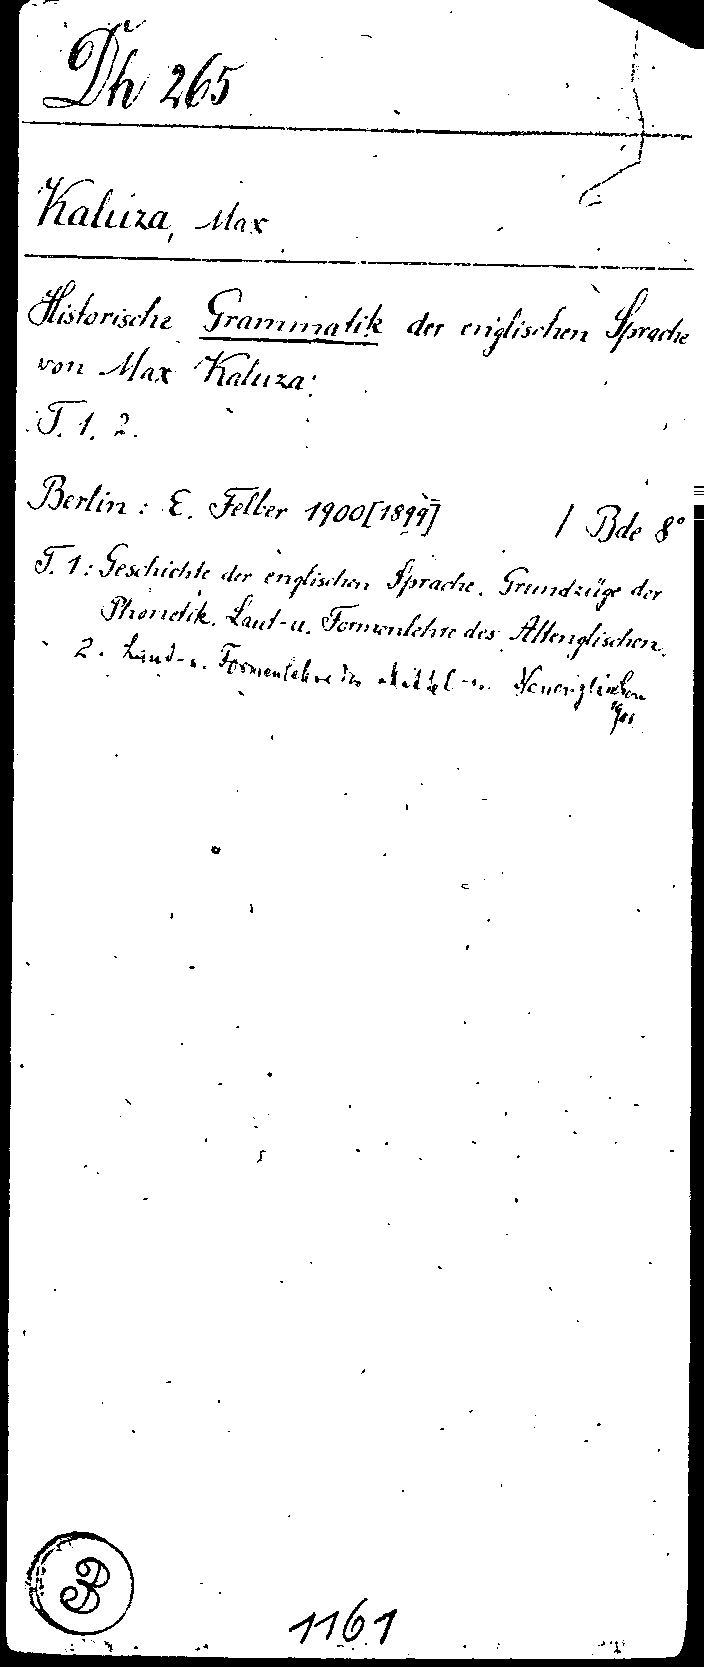 Dh 265
Kaluza, Max
Historische Grammatik der englischen Sprache
von Max Kaluza.
T. 1. 2.
Berlin: E. Felber 1900[1899] / Bde 8°
T. 1: Geschichte der englischen Sprache. Grundzüge der
Phonetik. Laut- u. Formenlehre des Altenglischen.
2. Laut- u. Formenlehre des Mittel- u. Neuenglischen
1901
B
1161